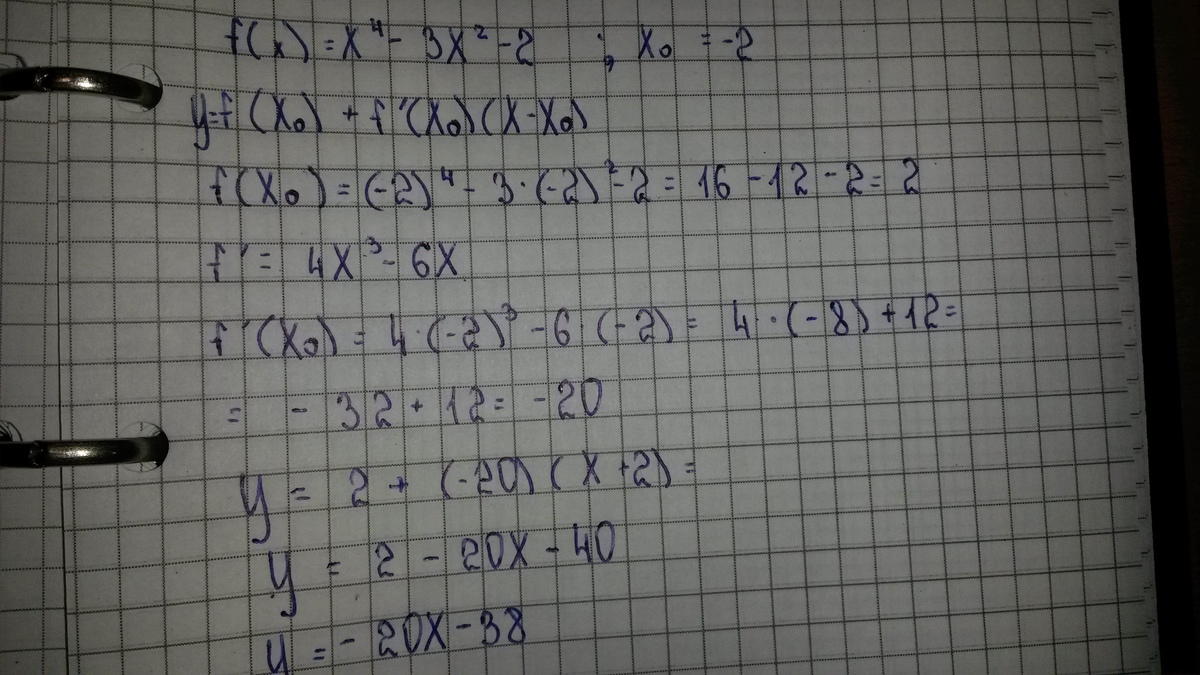 f(x) = x⁴ - 3x² - 2 ; x₀ = -2
y = f(x₀) + f'(x₀)(x-x₀)
f(x₀) = (-2)⁴ - 3·(-2)² - 2 = 16 - 12 - 2 = 2
f' = 4x³ - 6x
f'(x₀) = 4·(-2)³ - 6·(-2) = 4·(-8) + 12 =
= - 32 + 12 = -20
y = 2 + (-20)(x+2) =
y = 2 - 20x - 40
y = - 20x - 38